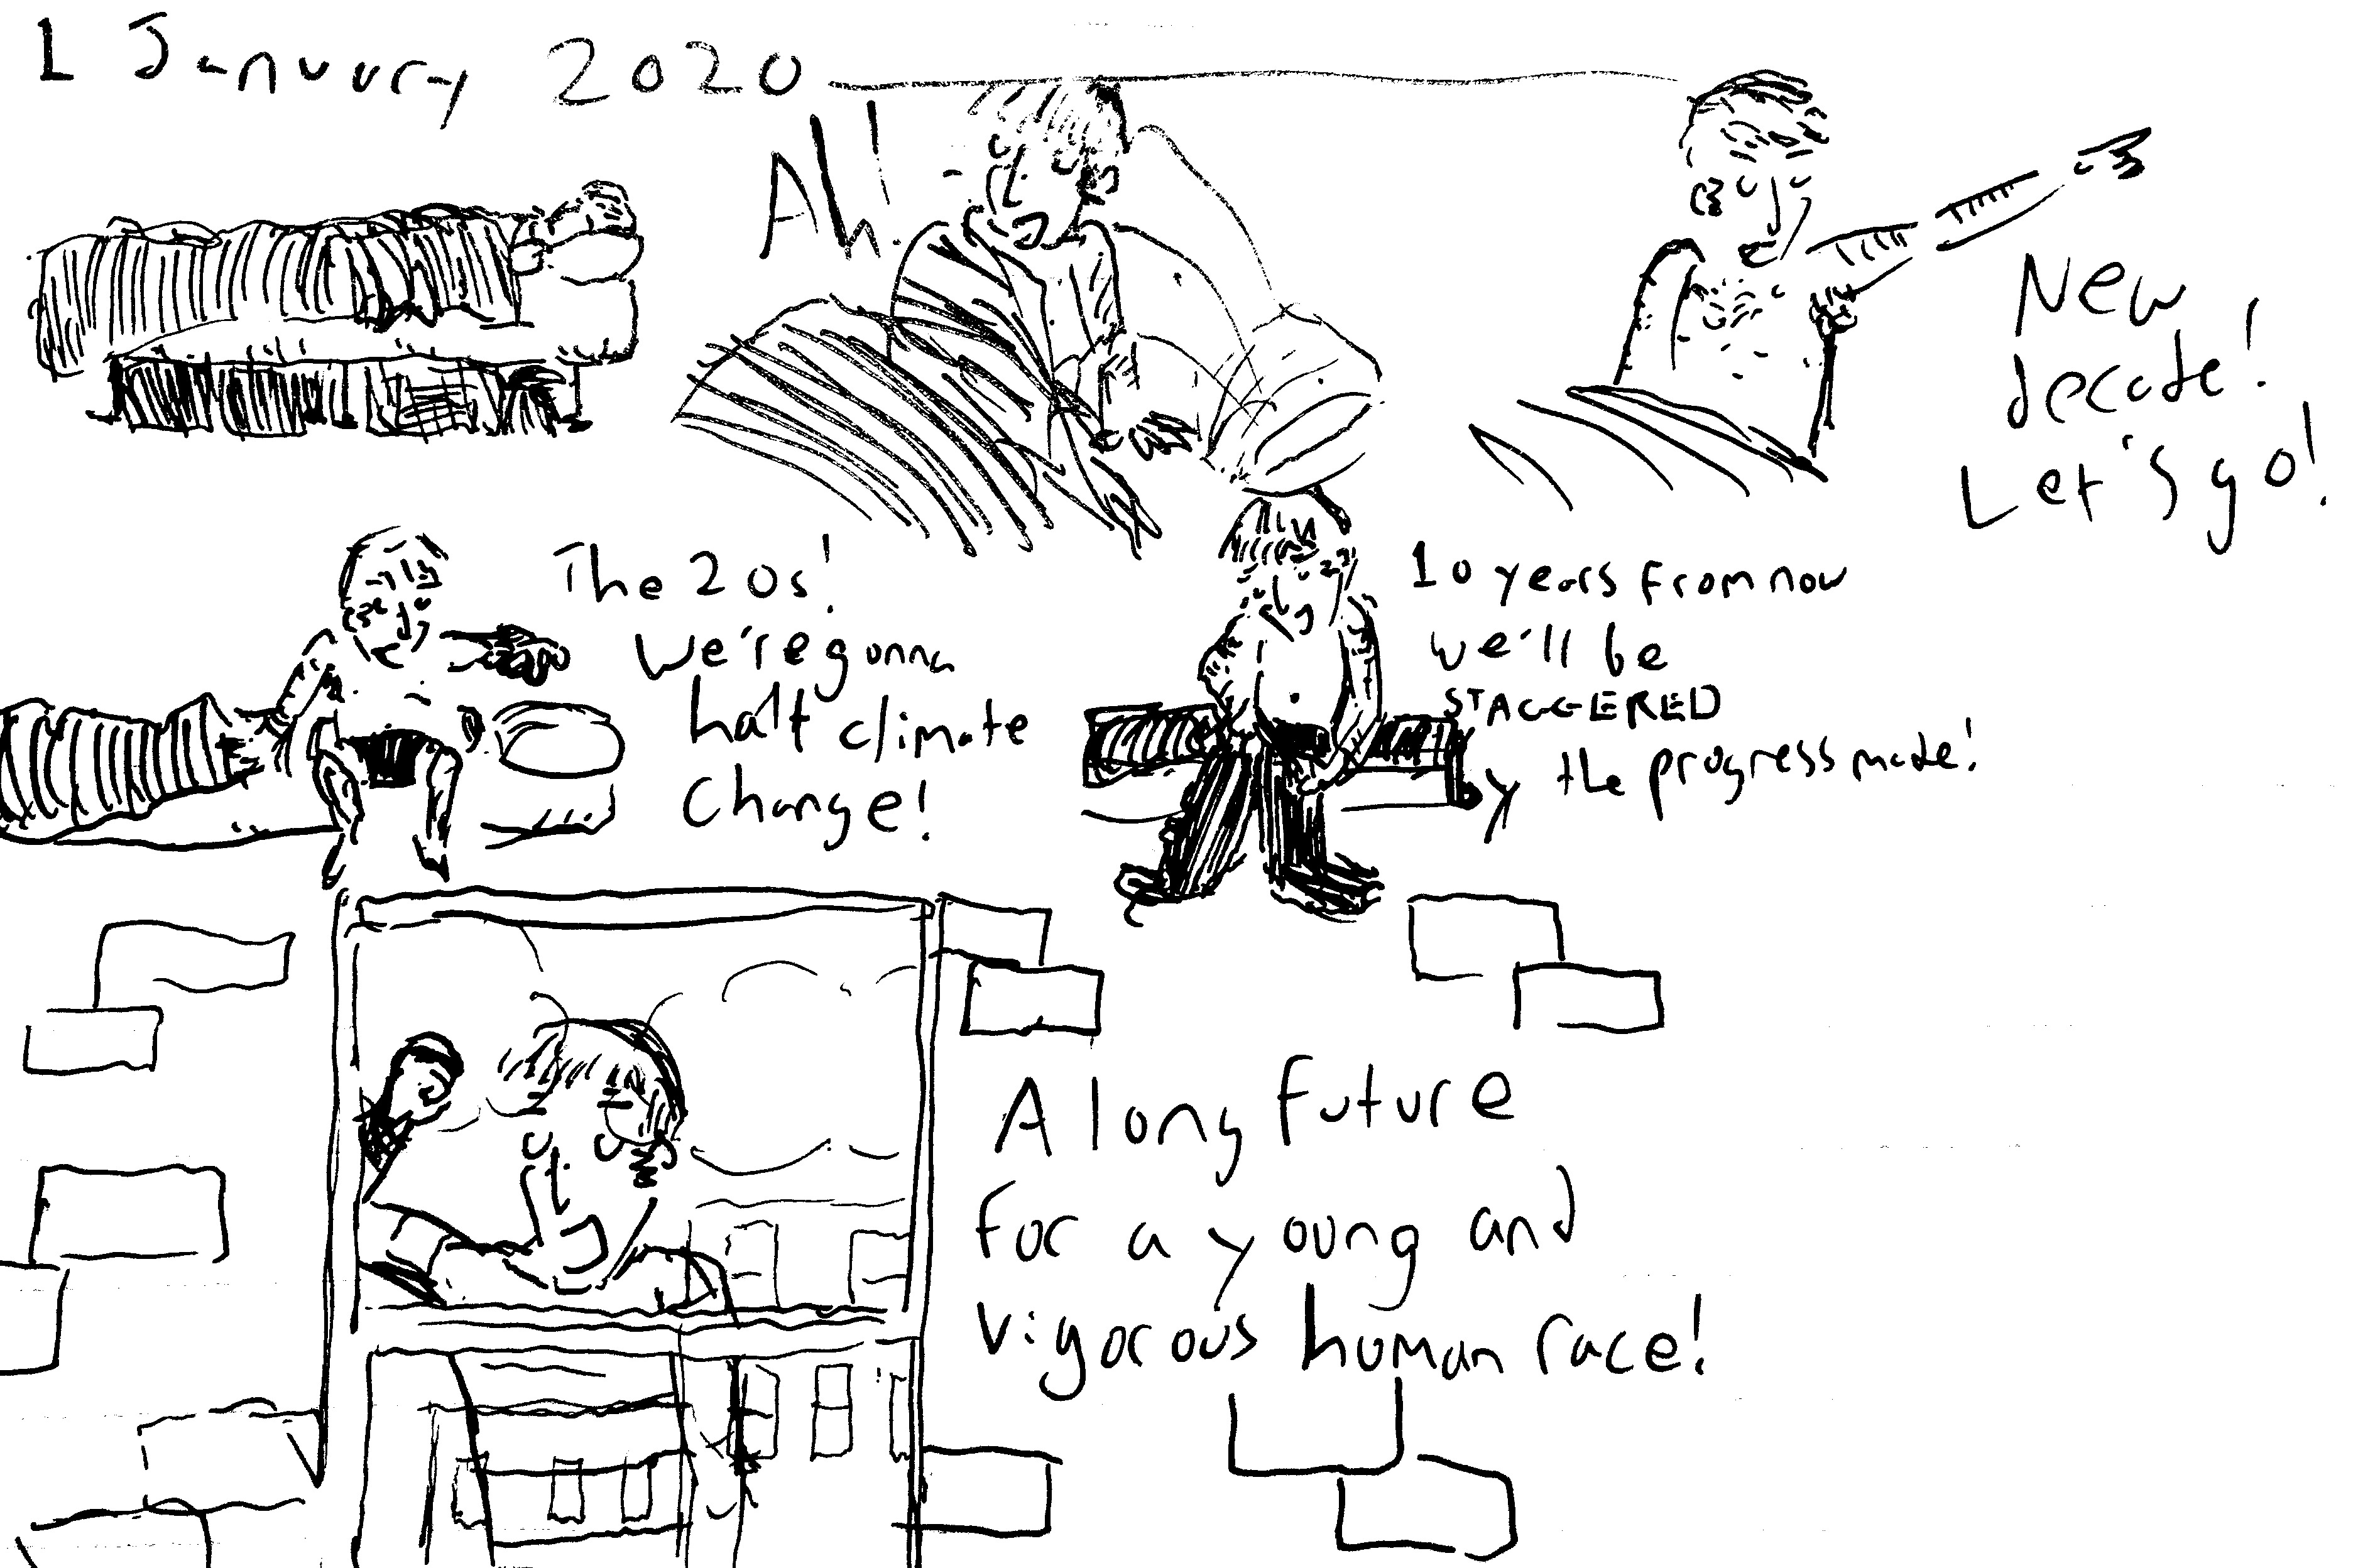 1 January 2020
Ah!
New
decade!
Let's go!
The 20s!
We're gonna
halt climate
change!
10 years from now
we'll be
STAGGERED
by the progress made!
A long future
for a young and
vigorous human race!